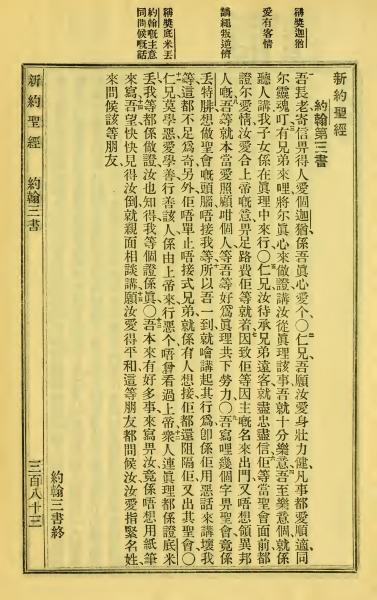 稱獎迦猶
愛有客情
稱獎底米丟
約翰嘅主意
同問候嘅話
新約聖經
約翰第三書
吾長老寄信畀得人愛個迦猶係吾眞心愛个〇仁兄吾願汝愛身壯力健凡事都愛順適同
尔靈魂叮有兄弟來哩將尔眞心來做證講汝從眞理該事吾就十分樂意吾至樂意個就係
聽人講我子女係在眞理中來行〇仁兄汝待承兄弟遠客就盡忠盡信佢等當聖會面前都
證尔愛情汝愛合上帝嘅意畀足路費佢等就着因致佢等因主嘅名來出門又唔想領異邦
人嘅吾等就本當愛照顧咁個人等吾等好爲眞理共下勞力〇吾寫哩幾個字畀聖會竟係
丟特腓想做聖會嘅頭腦唔接我等所以吾一到就會講起其行爲卽係佢用惡話來講壞我
等這都不足爲奇另外佢唔單止唔接式兄弟就係有人想接佢都還阻隔佢又出其聖會〇
仁兄莫學惡愛學善行善該人係由上帝來行惡个唔曾看過上帝衆人連眞理都係證底米
丟我等都係做證汝也知得我等個證係眞〇吾本來有好多事來寫畀汝竟係唔想用紙筆
來寫吾望快快見得汝倒就親面相談講願汝愛得平和這等朋友都問候汝汝愛指緊名姓
來問候該等朋友
約翰三書終
新約聖經
約翰三書
三百八十三